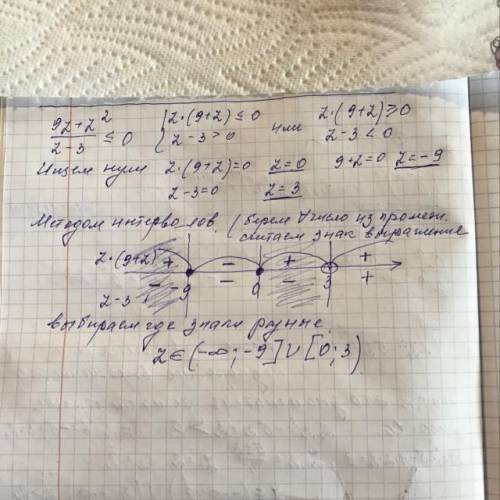 (9z+z²)/(z-3) ≤ 0 { z·(9+z) ≤ 0 или z·(9+z) ≥ 0
z-3 > 0 z-3 < 0
Ищем нули z·(9+z)=0 z=0 9+z=0 z=-9
z-3=0 z=3
Методом интервалов. (берем ∀ число из промеж.
считаем знак выражение
z·(9+z) + − + +
z-3 − -9 − 0 − 3 +
выбираем где знаки разные.
z∈(-∞;-9]∪[0;3)